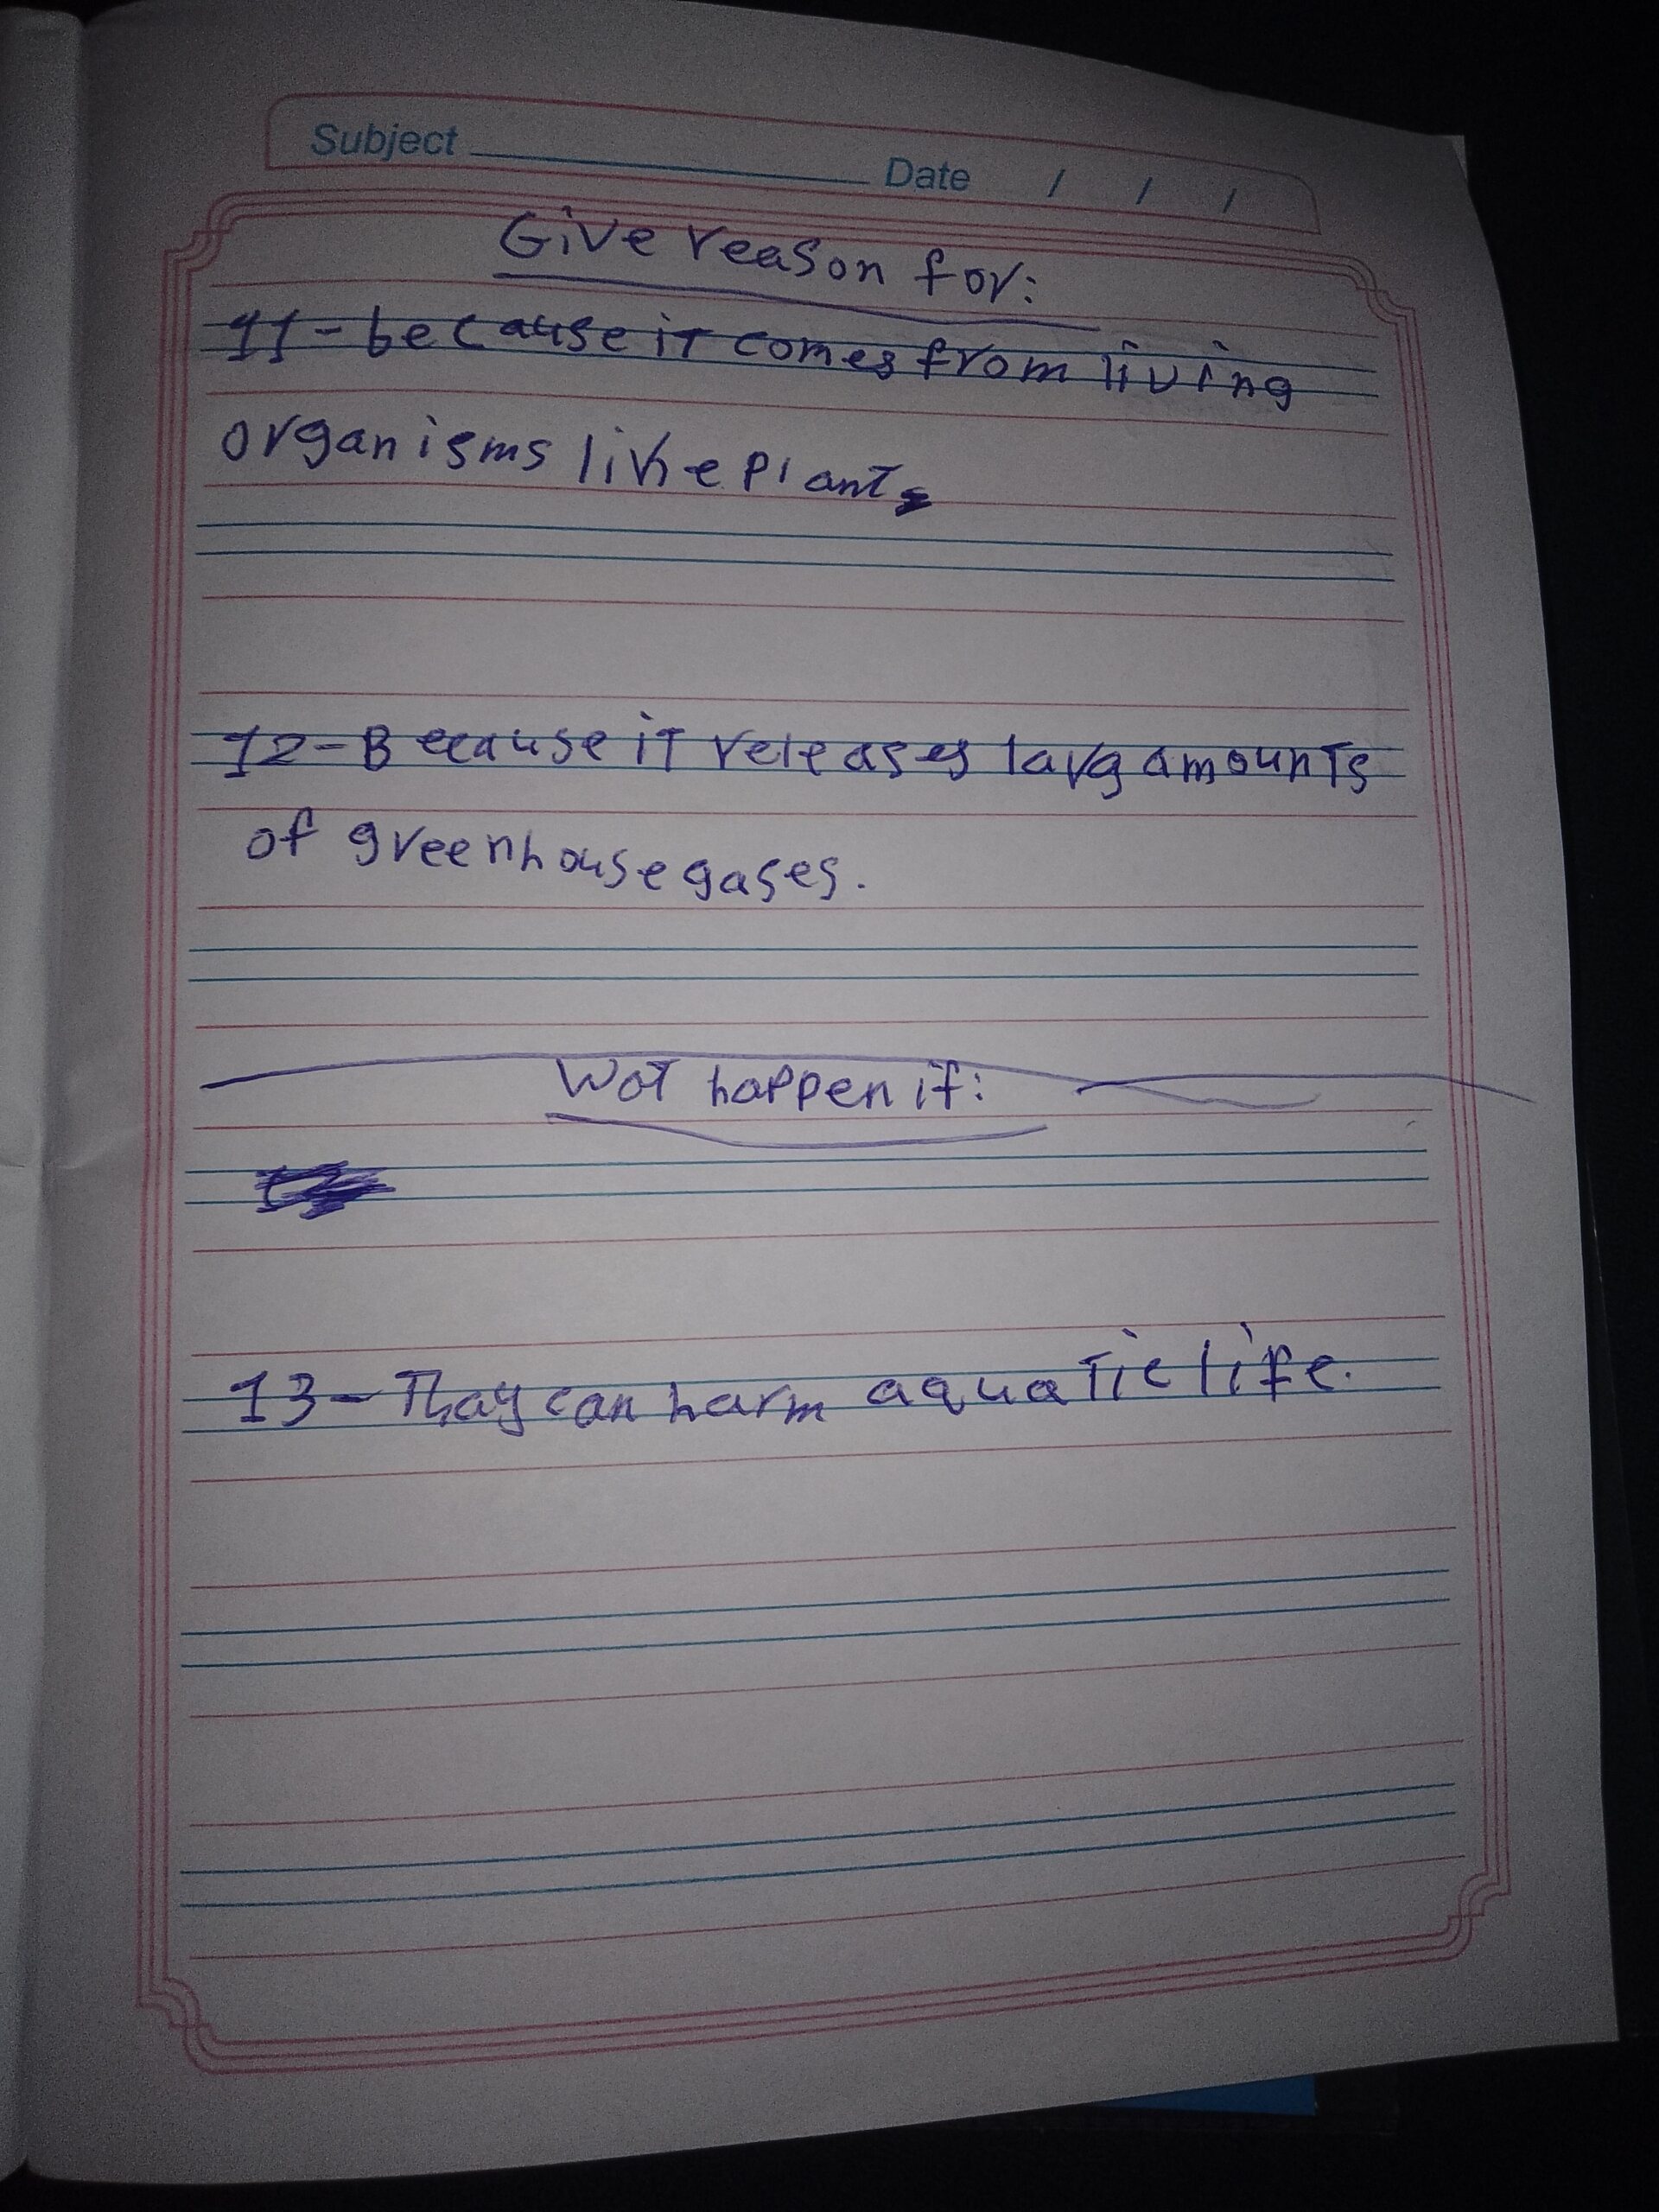 Subject Date / / /
Give reason for:
11- because it comes from living
organisms like plants
12- Because it releases larg amounts
of greenhouse gases.
Wot happen if:
13- Thay can harm aquatic life.